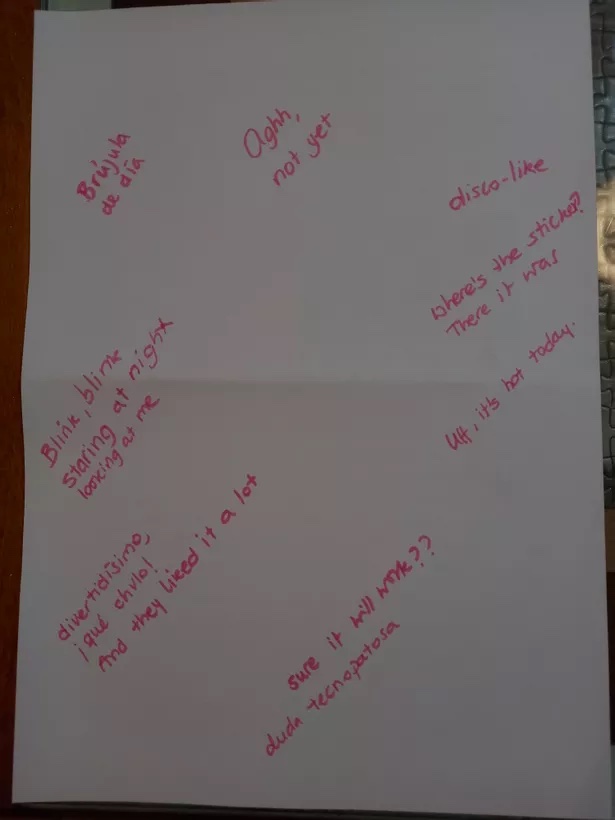 Brújula
de día
Aghh,
not yet
disco-like
Where's the sticker?
There it was
Uff, it's hot today.
Blink, blink
staring at night
looking at me
divertidísimo,
¡qué chulo!
And they liked it a lot
sure it will work??
duda tecnopatosa